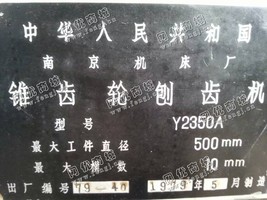 中华人民共和国
南京机床厂
锥齿轮刨齿机
型号 Y2350A
最大工件直径 500mm
最大模数 10mm
出厂编号 79-40 1979年5月制造